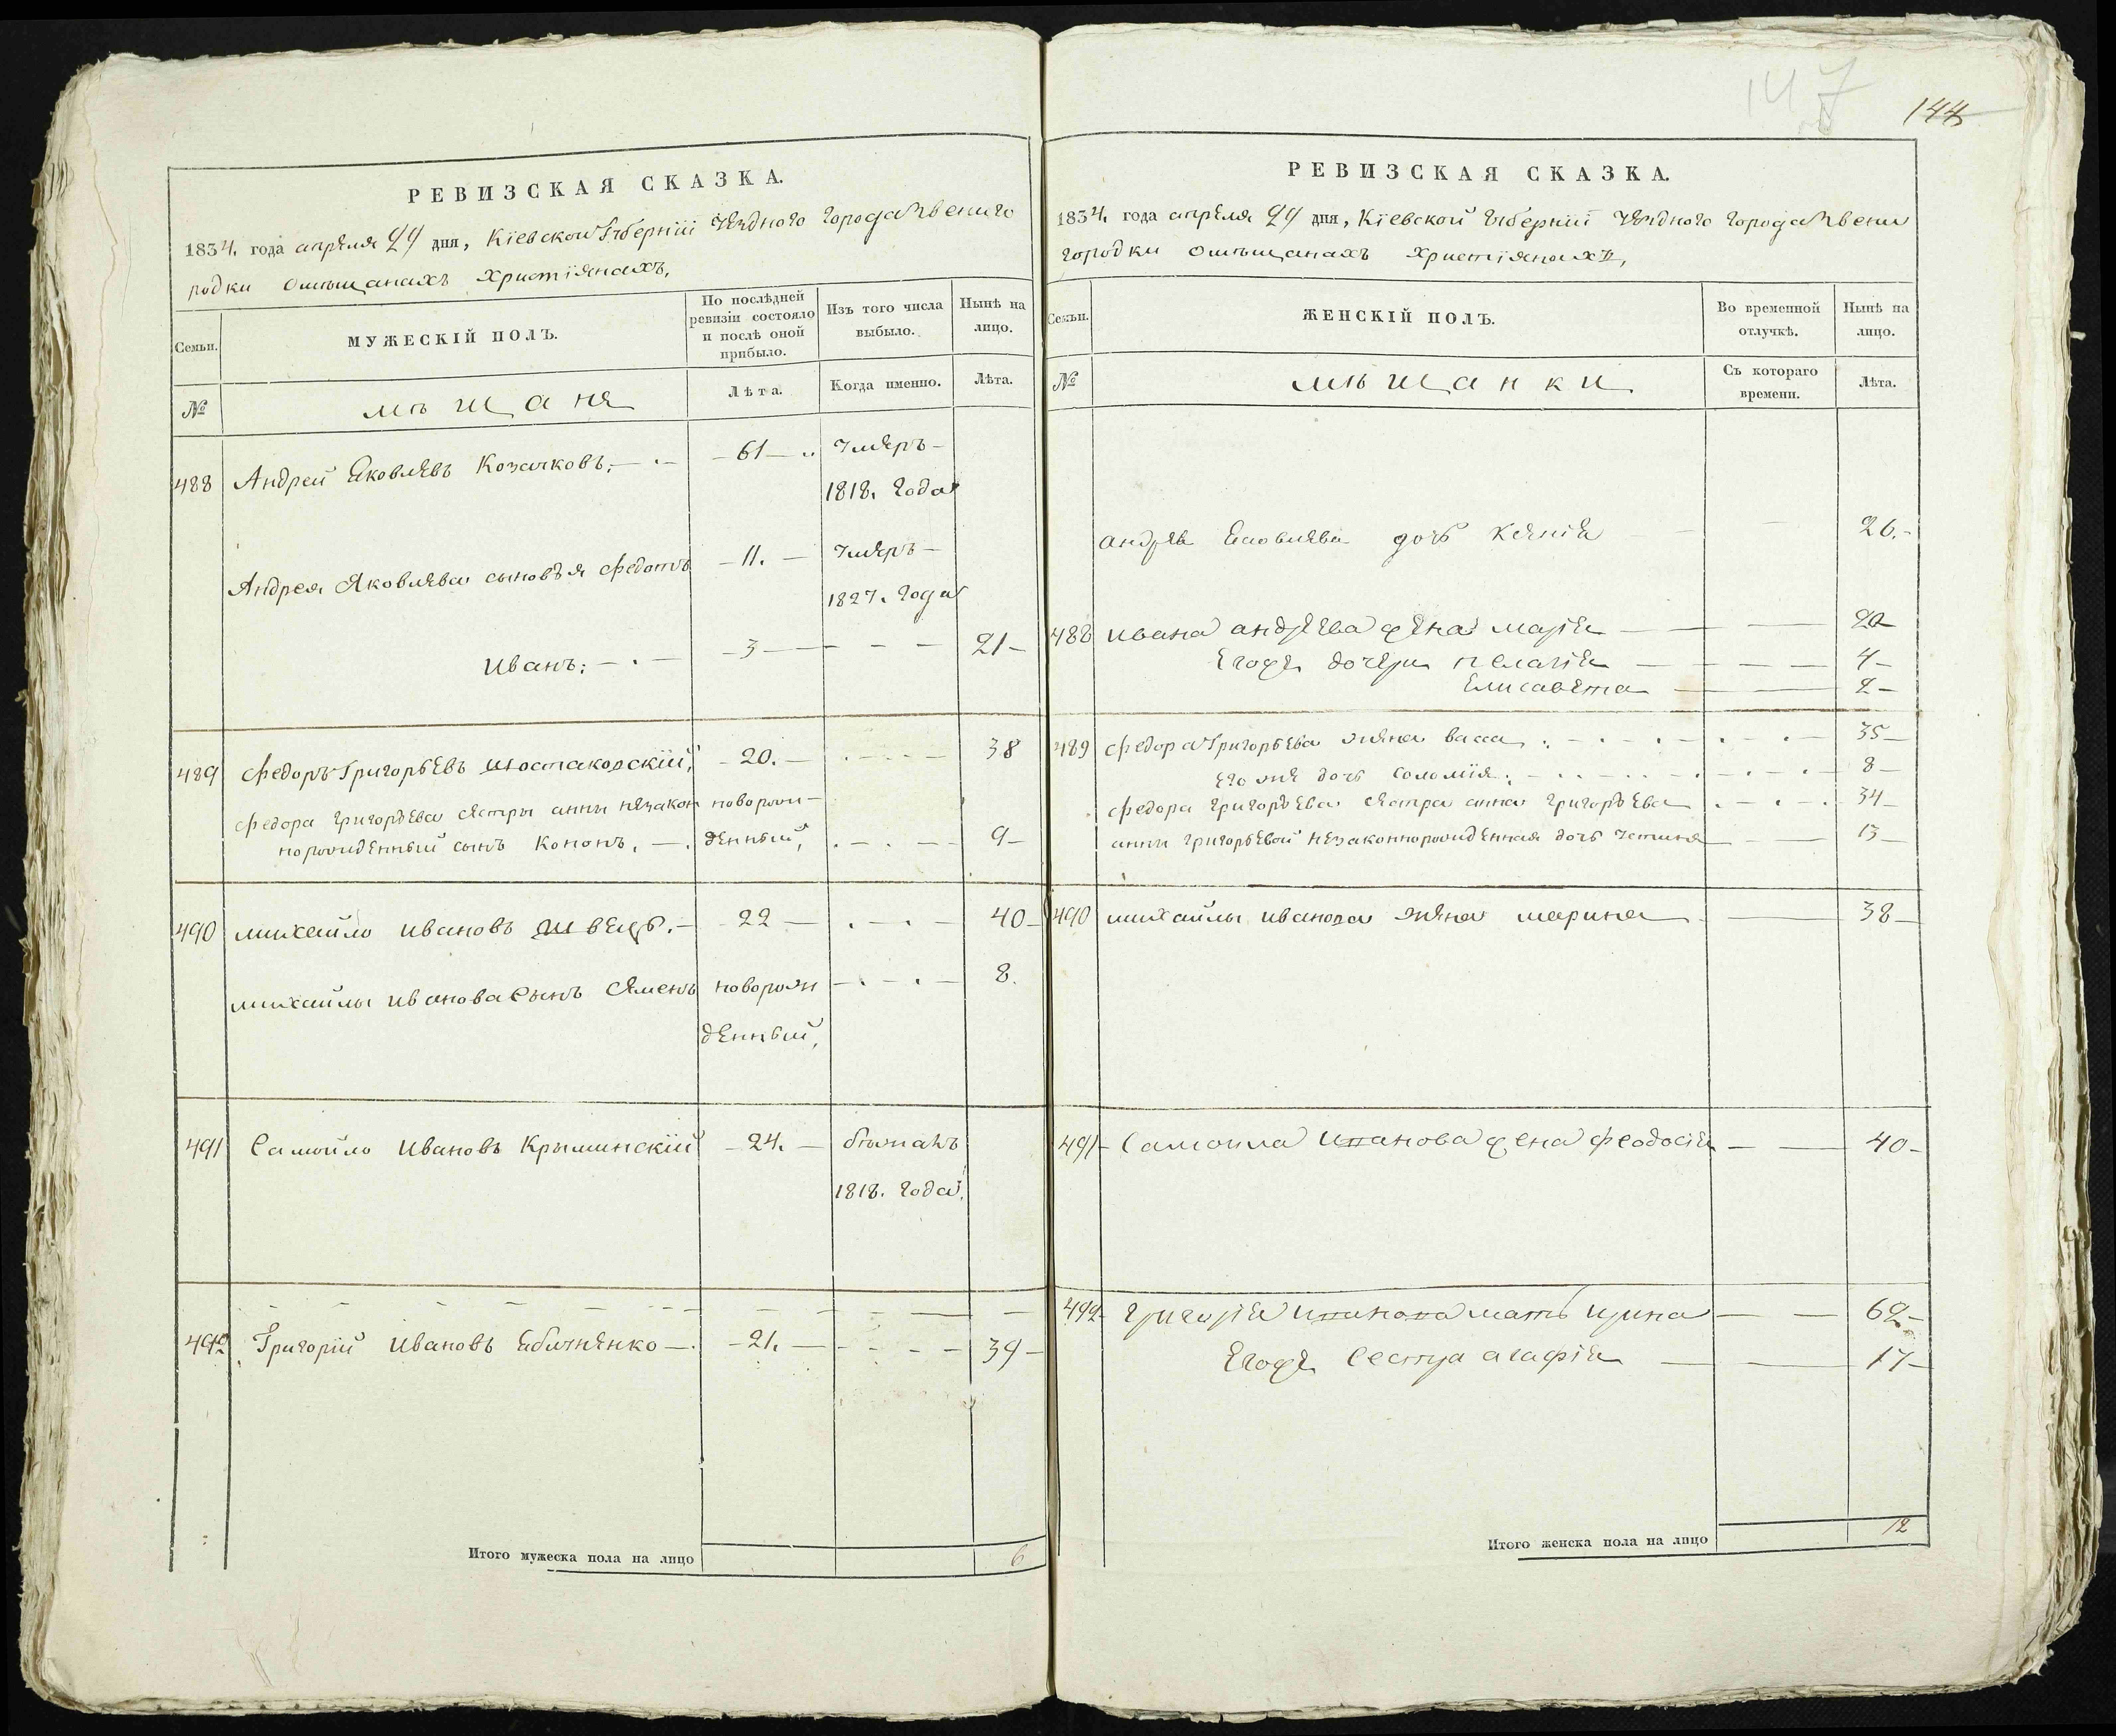 147
144
РЕВИЗСКАЯ СКАЗКА.
1834. года апреля 24 дня, Кіевской Губерніи Уезднаго города Звениго
родки омѣщанахъ христіянахъ,
Семьи.
МУЖЕСКІЙ ПОЛЪ.
По послѣдней ревизіи состояло и послѣ оной прибыло.
Изъ того числа выбыло.
Нынѣ на лицо.
№
мѣщаня
Лѣта.
Когда именно.
Лѣта.
488 Андрей Яковлевъ Козачковъ. — 61 — умеръ —
1818. года
Андрея Яковлева сыновья Федотъ — 11. — умеръ —
1827. года
Иванъ. — 3 — 21 —
489 Федоръ Григорьевъ Шостаковскій, — 20. — 38
Федора Григорьева сестры анны незакон новорож-
норожденный сынъ Кононъ. — денный, 9 —
490 михайло ивановъ швецъ. — 22 — 40 —
михайлы иванова сынъ Семенъноворож 8.
денный,
491 Самойло Ивановъ Крыминскій — 24. — бѣжалъ
1818. года.
492 Григорій Ивановъ Яблоненко — 21. — 39 —
Итого мужеска пола на лицо 6
РЕВИЗСКАЯ СКАЗКА.
1834. года апреля 24 дня, Кіевской Губерніи Уезднаго города Звени
городки омѣщанахъ христіянахъ,
Семьи.
ЖЕНСКІЙ ПОЛЪ.
Во временной отлучкѣ.
Нынѣ на лицо.
№
мѣщанки
Съ котораго времени.
Лѣта.
андрея Яковлева дочь Ксенія 26. —
488 ивана андреева жена марія 20
Егоже дочери пелагія 4 —
Елисавета 2 —
489 Федора Григорьева жена васса 35 —
его же дочь соломія. 8 —
Федора Григорьева сестра анна Григорьева 34 —
анны Григорьевой незаконнорожденная дочь устиня 13 —
490 михайлы иванова жена марина 38 —
491 — Самоила иванова жена феодосія 40 —
492 — григорія иванова мать ирина 62 —
Егоже сестра агафія 17 —
Итого женска пола на лицо 12